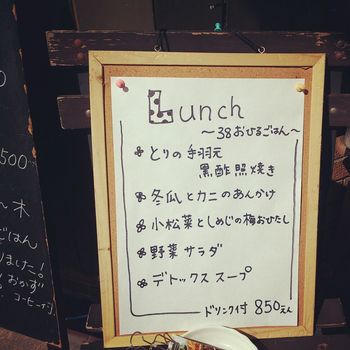 500
〜木
ごはん
ました!
おかず
コーヒー付
Lunch
〜38おひるごはん〜
とりの手羽元
黒酢照焼き
冬瓜とカニのあんかけ
小松菜としめじの梅おひたし
野菜サラダ
デトックススープ
ドリンク付 850えん